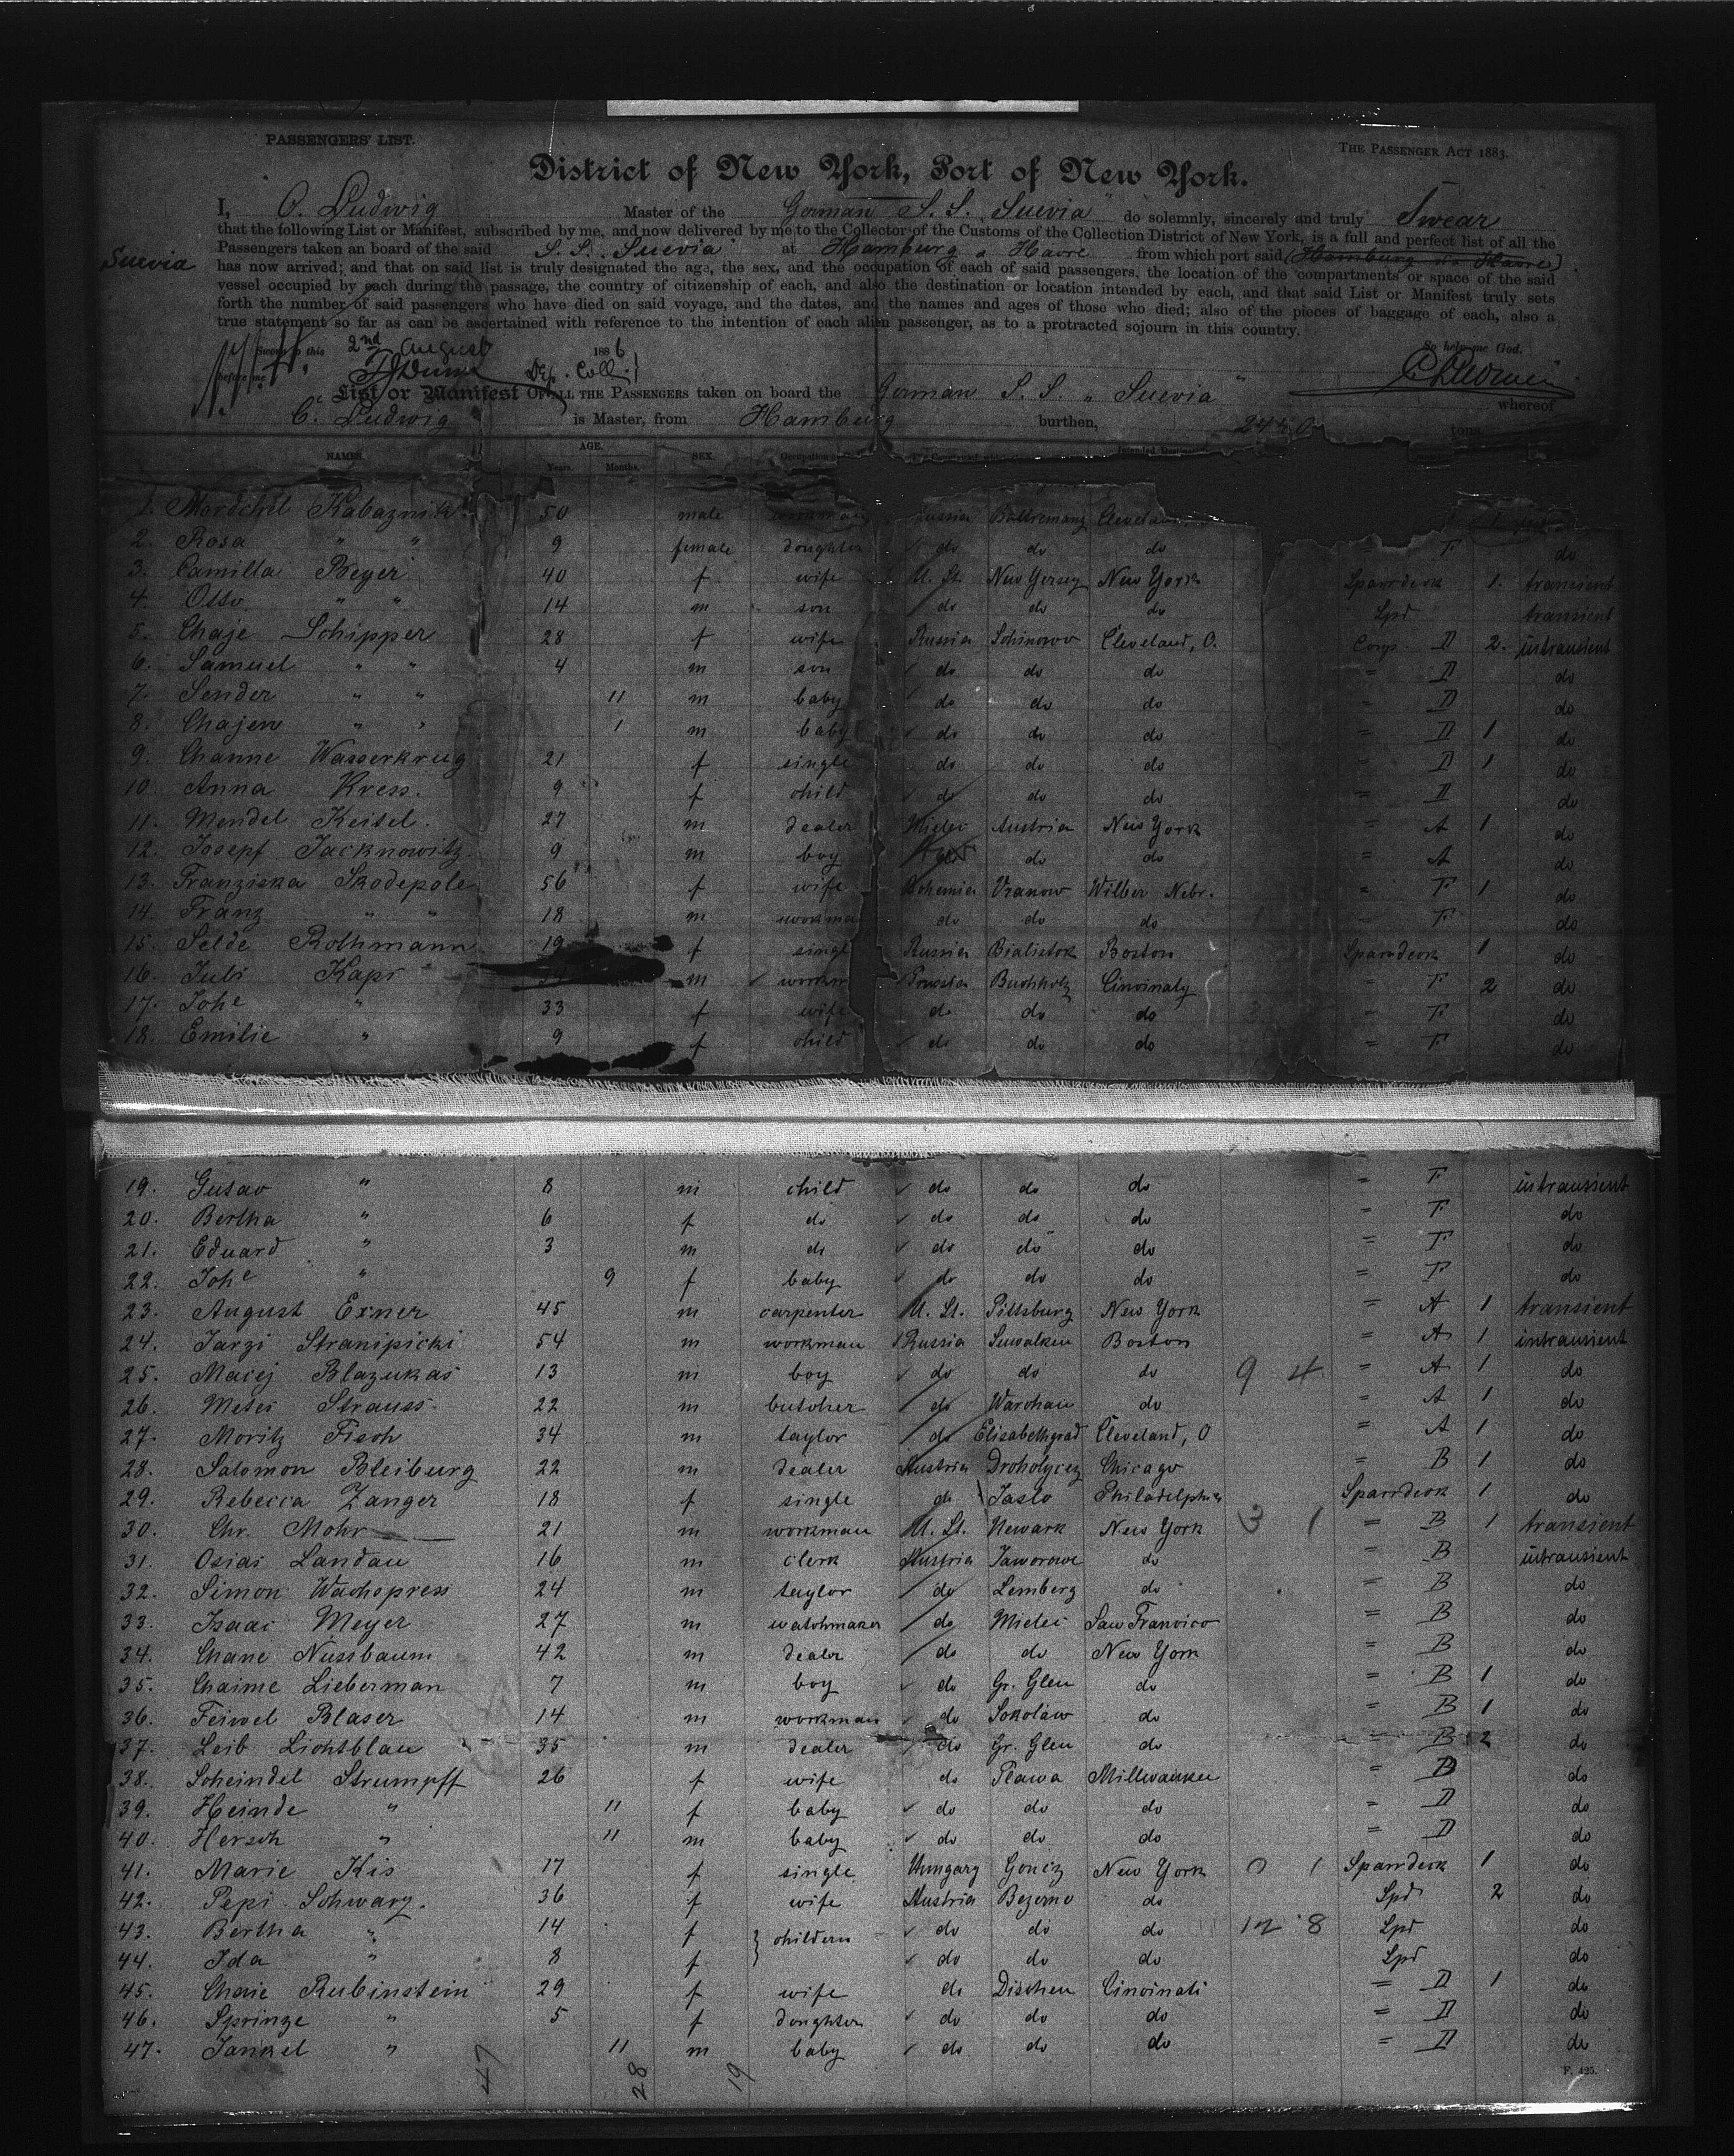 PASSENGERS' LIST.
THE PASSENGER ACT 1883.
District of New York, Port of New York.
I, C. Ludwig Master of the German S. S. "Suevia" do solemnly, sincerely and truly Swear
that the following List or Manifest, subscribed by me, and now delivered by me to the Collector of the Customs of the Collection District of New York, is a full and perfect list of all the
Suevia
Passengers taken an board of the said S. S. Suevia at Hamburg & Havre from which port said (Hamburg & Havre)
has now arrived; and that on said list is truly designated the age, the sex, and the occupation of each of said passengers, the location of the compartments or space of the said
vessel occupied by each during the passage, the country of citizenship of each, and also the destination or location intended by each, and that said List or Manifest truly sets
forth the number of said passengers who have died on said voyage, and the dates, and the names and ages of those who died; also of the pieces of baggage of each, also a
true statement so far as can be ascertained with reference to the intention of each alien passenger, as to a protracted sojourn in this country.
Sworn to this 2nd August 1886
So help me God.
before me Dep. Coll.
List or Manifest OF ALL THE PASSENGERS taken on board the German S. S. "Suevia" whereof
C. Ludwig is Master, from Hamburg burthen, tons
NAMES. AGE. Years. Months. SEX. Occupation
1. Mordchel Kabaznik 50 male Russia Cleveland
2. Rosa " " 9 female doughter do do do = F do
3. Camilla Beyer 40 f wife U. St. New Yersey New York Sparrdeck 1. transient
4. Otto " " 14 m son do do do Spd transient
5. Chaje Schipper 28 f wife Russia Schinowo Cleveland, O. Corp. D 2. intransient
6. Samuel " " 4 m son do do do = D do
7. Sender " " 11 m baby do do do = D do
8. Chajew " " 1 m baby do do do = D 1 do
9. Channe Wasserkrug 21 f single do do do = D 1 do
10. Anna Kress. 9 f child do do do = D do
11. Mendel Keitel. 27 m dealer Mielec Austria New York = A 1 do
12. Josepf Jacknowitz 9 m boy do do do = A do
13. Franziska Skodepole 56 f wife Bohemia Vranow Wilber Nebr. = F 1 do
14. Franz " " 18 m workman do do do = F do
15. Selde Rothmann 19 f single Russia Bialistok Boston Sparrdeck 1 do
16. Juls Kapr m workm Prussia Buchholz Cincinaty = F 2 do
17. Johe " 33 f wife do do do = F do
18. Emilie " 9 f child do do do = F do
19. Gustav " 8 m child do do do = F intransient
20. Bertha " 6 f do do do do = F do
21. Eduard " 3 m do do do do = F do
22. Johe " 9 f baby do do do = F do
23. August Exner 45 m carpenter U. St. Pittsburg New York = A 1 transient
24. Jurgi Stranipicki 54 m workman Russia Suwalken Boston = A 1 intransient
25. Maciej Blazukas 13 m boy do do do 9 4 = A 1 do
26. Meses Strauss 22 m butcher do Warchau do = A 1 do
27. Moritz Fisch 34 m taylor do Elisabethgrad Cleveland, O = A 1 do
28. Salomon Bleiburg 22 m dealer Austria Droholycez Chicago = B 1 do
29. Rebecca Zanger 18 f single do Jaslo Philadelphia Sparrdeck 1 do
30. Chr. Mohr 21 m workman U. St. Newark New York 3 1 = B 1 transient
31. Osias Landau 16 m clerk Austria Jaworow do = B intransient
32. Simon Wachspress 24 m taylor do Lemberg do = B do
33. Isaac Meyer 27 m watchmaker do Mielec San Francico = B do
34. Chane Nussbaum 42 m dealer do do New York = B do
35. Chaime Lieberman 7 m boy do Gr. Glen do = B 1 do
36. Feiwel Blaser 14 m workman do Sokolaw do = B 1 do
37. Leib Lichtblau 35 m dealer do Gr. Glen do = B 2 do
38. Scheindel Strumpff 26 f wife do Plawa Millwaukee = D do
39. Heinde " 11 f baby do do do = D do
40. Hersch " 11 m baby do do do = D do
41. Marie Kis 17 f single Hungary Goncz New York 0 1 Sparrdeck 1 do
42. Pepi Schwarz. 36 f wife Austria Bezerno do Spd 2 do
43. Bertha " 14 f } childern do do do 12 8 Spd do
44. Ida " 8 f do do do Spd do
45. Chaie Rubinstein 29 f wife do Dischen Cincinati = D 1 do
46. Sprinze " 5 f doughter do do do = D do
47. Jankel " 11 m baby do do do = D do
47 28 19
F. 425.